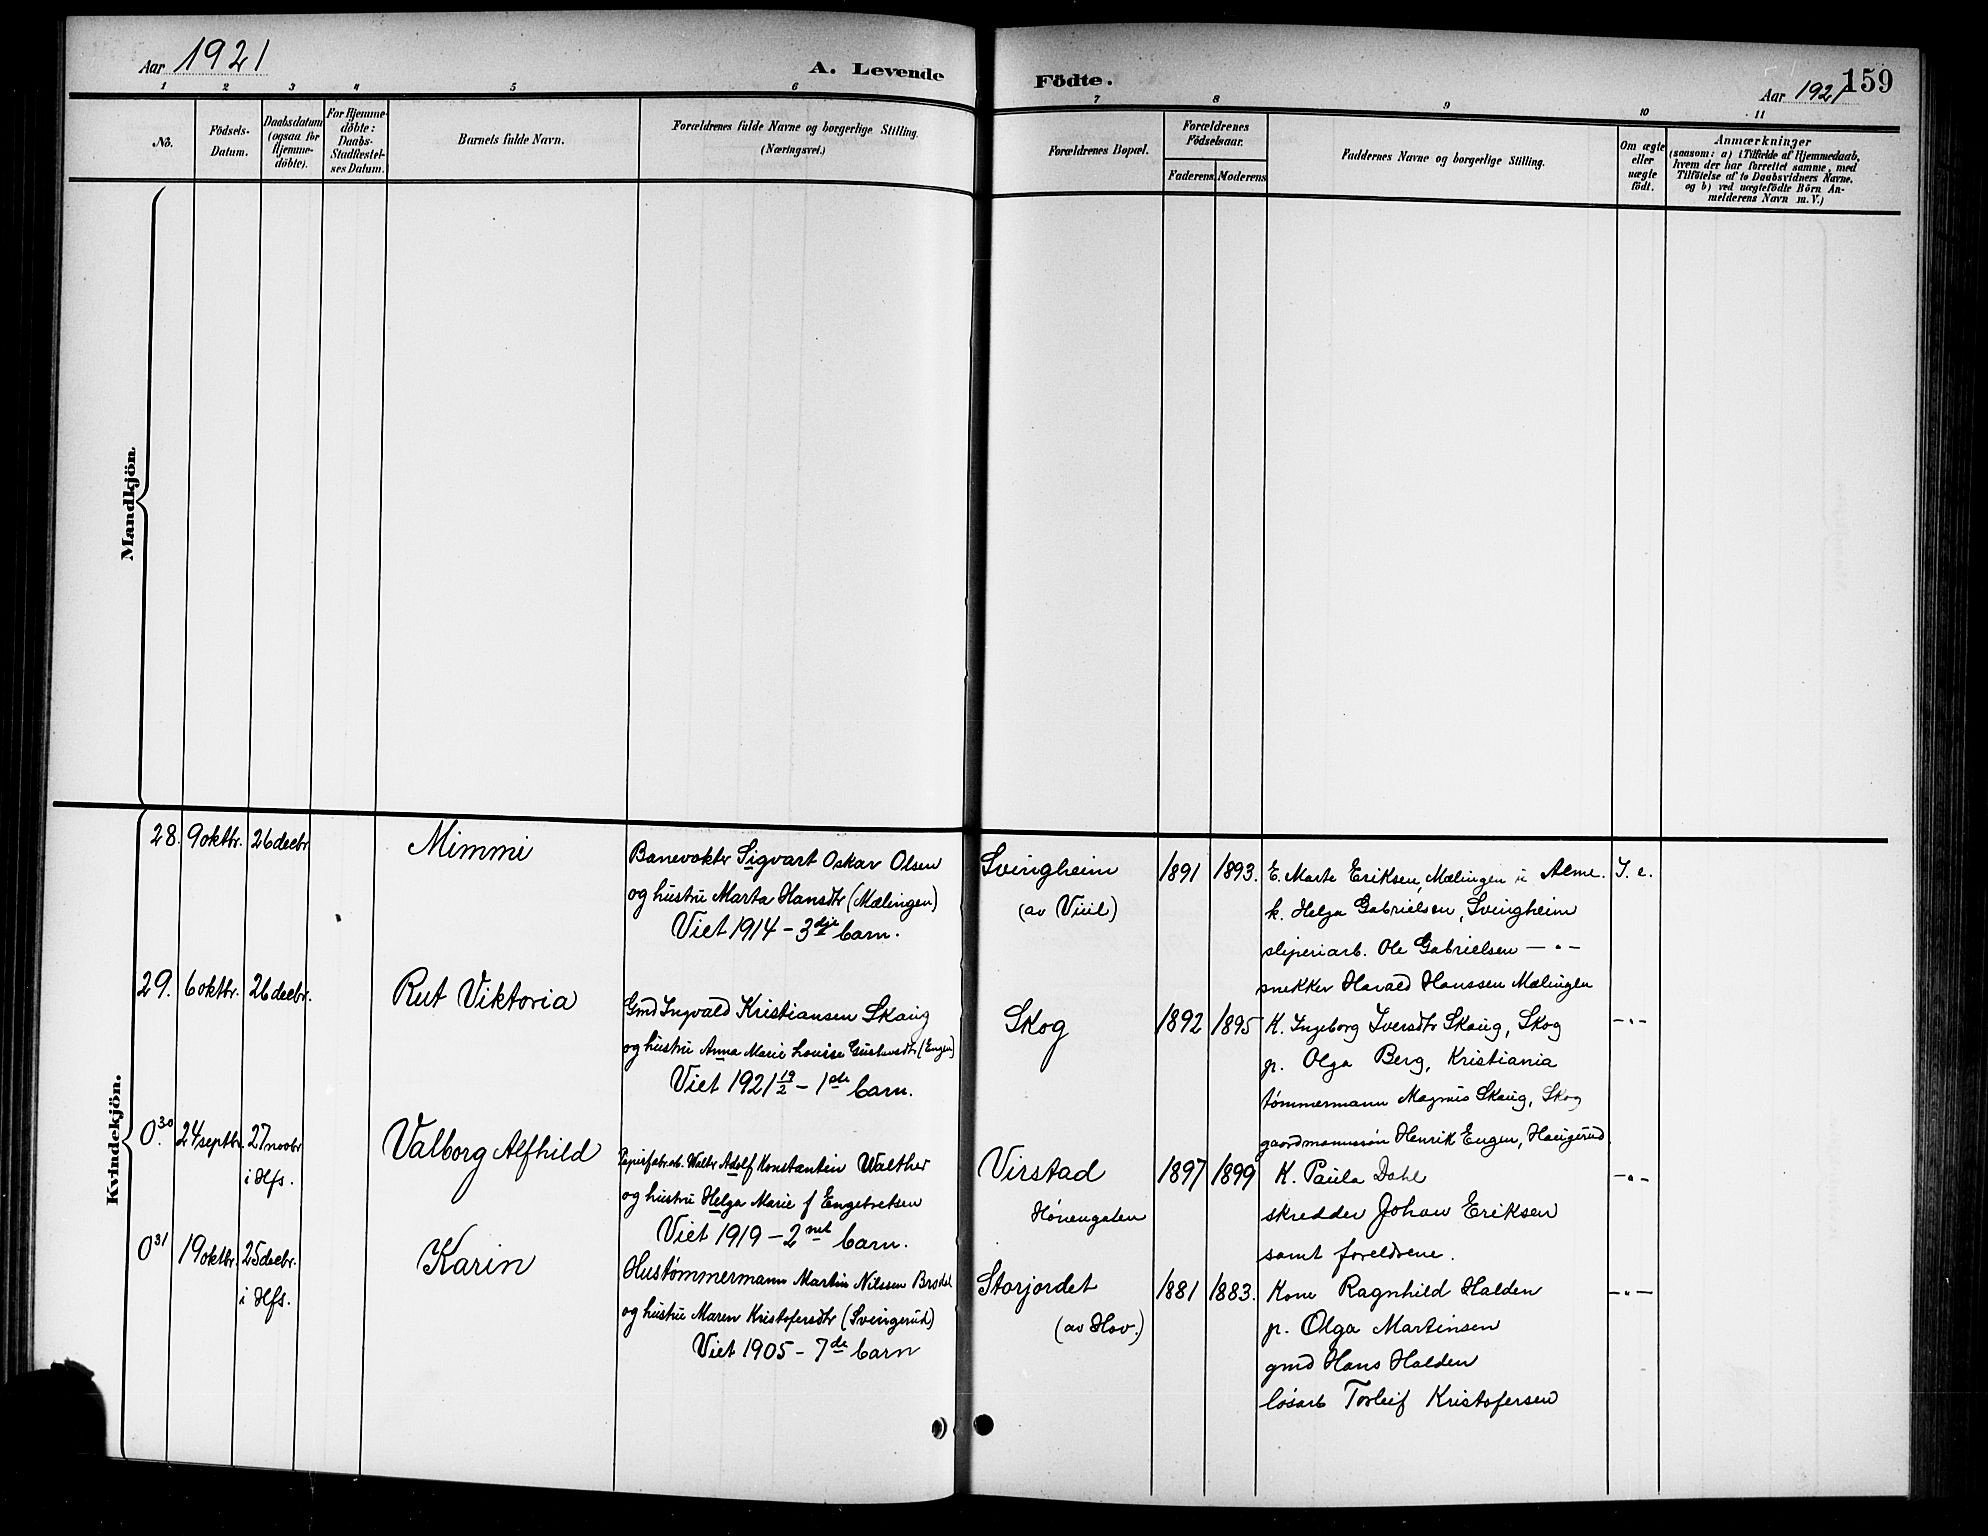 Aar 1921
A. Levende
Födte.
Aar 1921
159
1 2 3 4 5 6 7 8 9 10 11
No.
Födsels-
Datum.
Daabsdatum
(ogsaa for
Hjemme-
döbte).
For Hjemme-
döbte:
Daabs-
Stadfestel-
ses Datum.
Barnets fulde Navn.
Forældrenes fulde Navne og borgerlige Stilling.
(Næringsvei.)
Forældrenes Bopæl.
Forældrenes
Födselsaar.
Faderens. Moderens
Faddernes Navne og borgerlige Stilling.
Om ægte
eller
uægte
födt.
Anmærkninger
(saasom: a) i Tilfælde af Hjemmedaab,
hvem der har forrettet samme, med
Tilföielse af to Daabsvidners Navne.
og b) ved uægtefödte Börn An-
melderens Navn m. V.)
Mandkjön.
Kvindekjön.
28. 9 oktbr. 26 decbr.
Mimmi
Banevokter Sigvart Oskar Olsen
og hustru Marta Hansdtr (Mælingen)
Viet 1914 - 3dje barn.
Svingheim
(av Viul)
1891 1893.
E. Marte Eriksen, Mælingen u Alme.
k. Helga Gabrielsen, Svingheim
sliperiarb. Ole Gabrielsen — " —
snekker Harald Hanssen Mælingen
29. 6 oktbr. 26 decbr.
Rut Viktoria
Gmd Ingvald Kristiansen Skaug
og hustru Anna Marie Lovise Gustavsdtr (Engen)
Viet 1921 19/2 - 1ste barn.
Skog
1892 1895
K. Ingeborg Iversdtr Skaug, Skog
p. Olga Berg, Kristiania
tømmermann Magnus Skaug, Skog
gaardmannssøn Henrik Engen, Haugerud.
— " —
0.30 24 septbr. 27 novbr
i Hfs.
Valborg Alfhild
Papirfabr.arb. Walter Adolf Konstantin Walther
og hustru Helga Marie f Engebretsen
Viet 1919 - 2net barn.
Virstad
Hønengaten
1897 1899
K. Paula Dahl
skredder Johan Eriksen
samt foreldrene.
— " —
0 31 19 oktbr. 25 decbr.
i Hfs.
Karin
Hustømmermann Martin Nilssen
og hustru Maren Kristofersdtr (Svingerud)
Viet 1905 - 7de barn
Storjordet
(av Hov.)
1881 1883.
Kone Ragnhild Halden
p. Olga Martinsen
gmd Hans Halden
løsarb Torleif Kristofersen
— " —